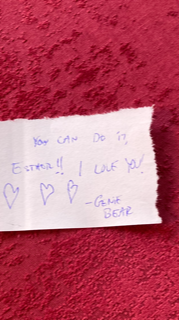 You can do it,
Esther!! I love you!
- Gene
Bear